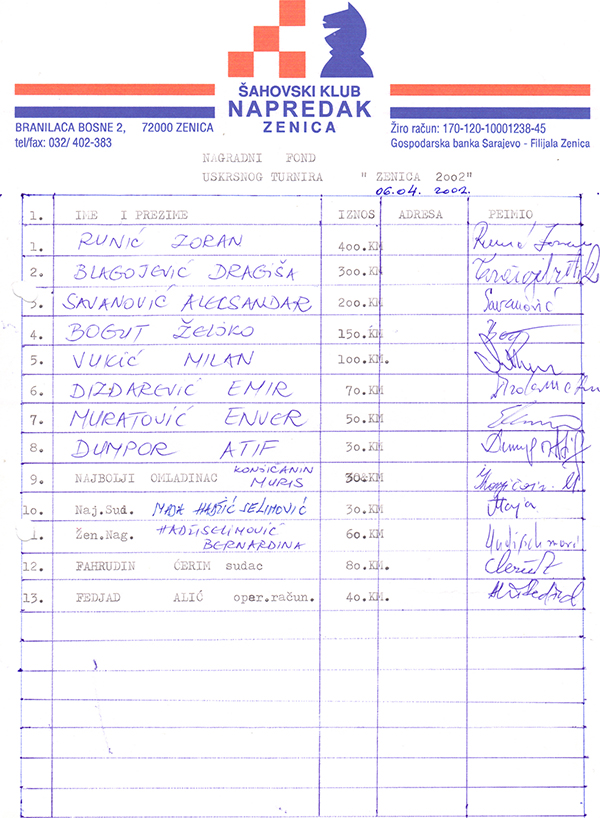 ŠAHOVSKI KLUB
NAPREDAK
ZENICA
BRANILACA BOSNE 2, 72000 ZENICA
tel/fax: 032/ 402-383
Žiro račun: 170-120-10001238-45
Gospodarska banka Sarajevo - Filijala Zenica
NAGRADNI FOND
USKRSNOG TURNIRA " ZENICA 2002"
06.04. 2002.
1. IME I PREZIME IZNOS ADRESA PEIMIO
1. RUNIĆ ZORAN 400.KM
2. BLAGOJEVIĆ DRAGIŠA 300.KM
3. SAVANOVIĆ ALECSANDAR 200.KM Savanović
4. BOGUT ŽELJKO 150.KM
5. VUKIĆ MILAN 100.KM.
6. DIZDAREVIĆ EMIR 70.KM
7. MURATOVIĆ ENVER 50.KM
8. DUMPOR ATIF 30.KM
9. NAJBOLJI OMLADINAC KONJIČANIN MURIS 30.KM
10. Naj.Sud. HADŽISELIMOVIĆ 30.KM Maja
1. Žen.Nag. HADŽISELIMOVIĆ BERNARDINA 60.KM
12. FAHRUDIN ĆERIM sudac 80.KM.
13. FEDJAD ALIĆ oper.račun. 40.KM.